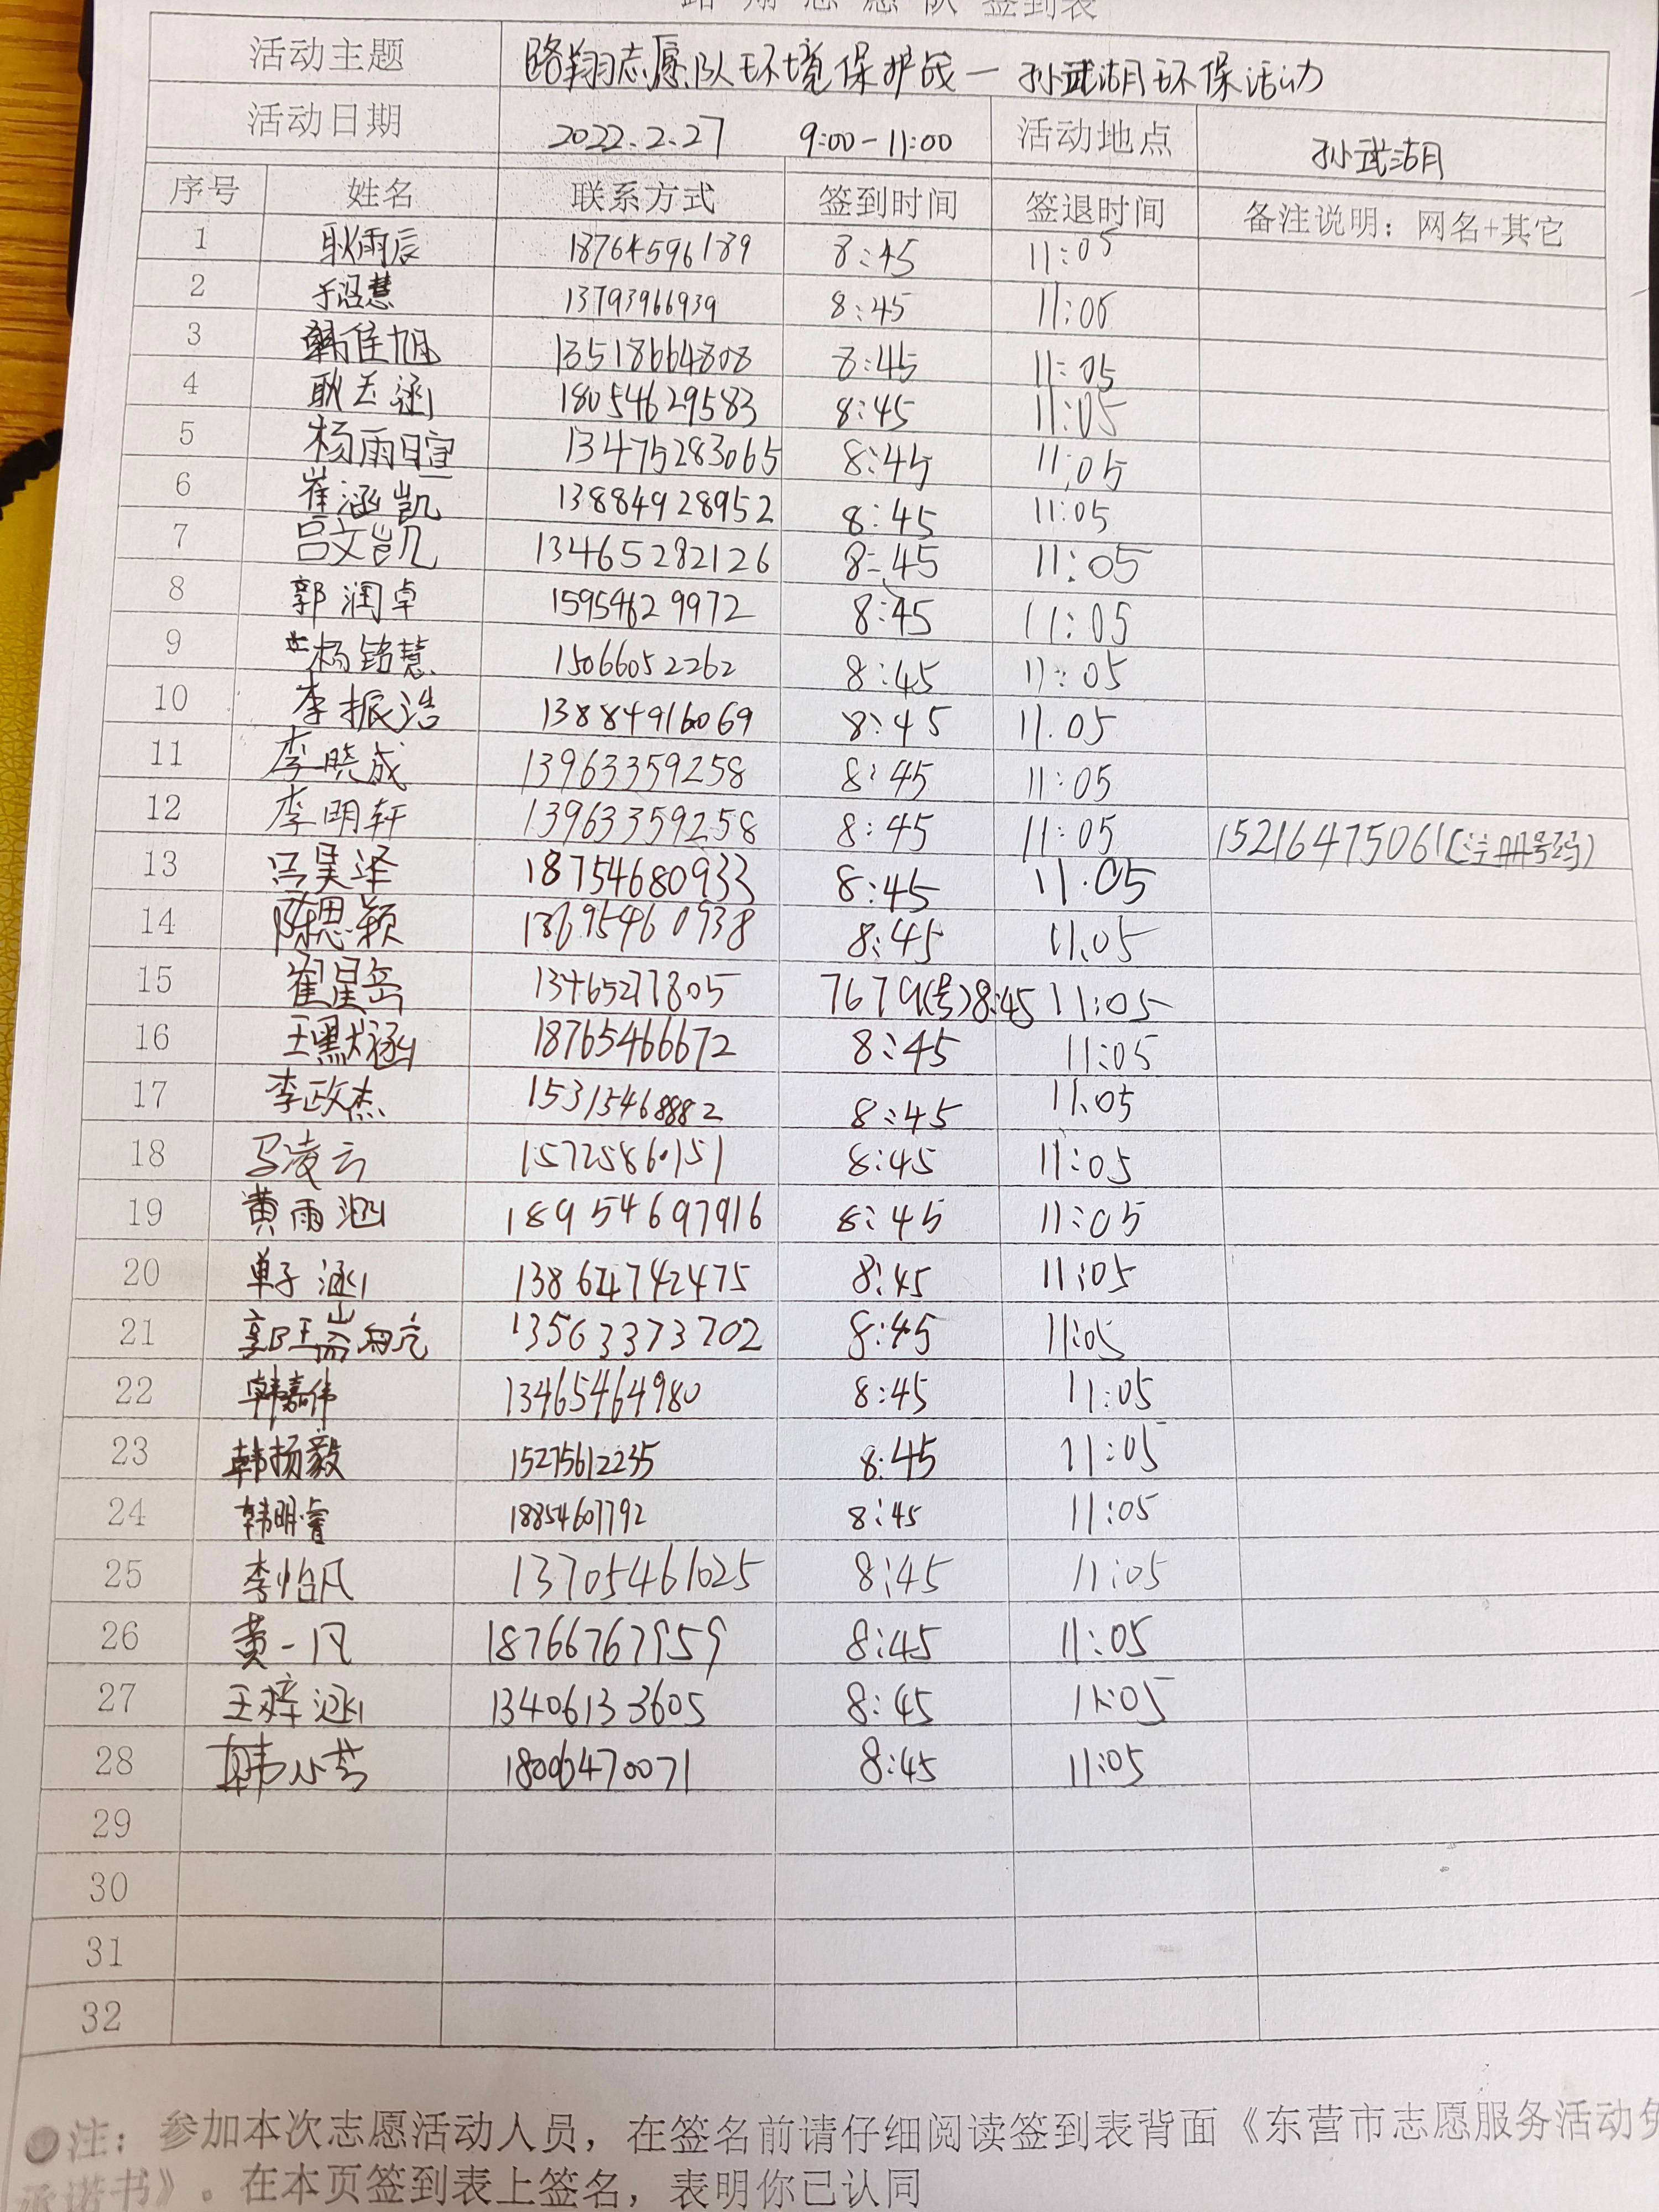 路翔志愿队签到表
活动主题 路翔志愿队环境保护战—孙武湖环保活动
活动日期 2022.2.27 9:00-11:00 活动地点 孙武湖
序号 姓名 联系方式 签到时间 签退时间 备注说明：网名+其它
1 耿雨辰 18764596189 8:45 11:05
2 于涵慧 13793966939 8:45 11:05
3 韩佳旭 13518664808 8:45 11:05
4 耿玉涵 18054629583 8:45 11:05
5 杨雨暄 13475283065 8:45 11:05
6 崔涵凯 13884928952 8:45 11:05
7 吕文凯 13465282126 8:45 11:05
8 郭润卓 15954629972 8:45 11:05
9 杨铭慧 15066052262 8:45 11:05
10 李振浩 13884916069 8:45 11.05
11 李晓成 13963359258 8:45 11:05
12 李明轩 13963359258 8:45 11:05 15216475061(注册号码)
13 吕昊泽 18754680933 8:45 11.05
14 陈思颖 8:45 11.05
15 崔星岳 13465277805 7679(号)8:45 11:05
16 王默涵 18765466672 8:45 11:05
17 李政杰 15315468882 8:45 11:05
18 马凌云 15725860151 8:45 11:05
19 黄雨涵 18954697916 8:45 11:05
20 单子涵 8:45 11:05
21 郭 13563373702 8:45 11:05
22 韩嘉伟 13465464980 8:45 11:05
23 韩扬毅 15275612235 8:45 11:05
24 韩明睿 18854607792 8:45 11:05
25 李怡凡 13705461025 8:45 11:05
26 黄一凡 18766767959 8:45 11:05
27 王梓涵 13406133605 8:45 11:05
28 韩小芸 18006470071 8:45 11:05
29
30
31
32
注：参加本次志愿活动人员，在签名前请仔细阅读签到表背面《东营市志愿服务活动免
承诺书》。在本页签到表上签名，表明你已认同